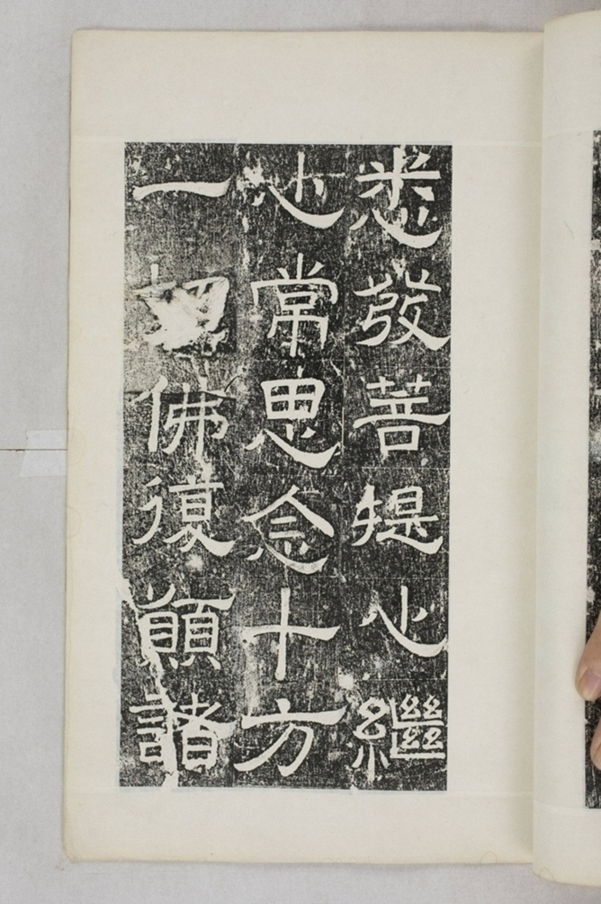 悉發菩提心繼
心常思念十方
一切佛復願諸